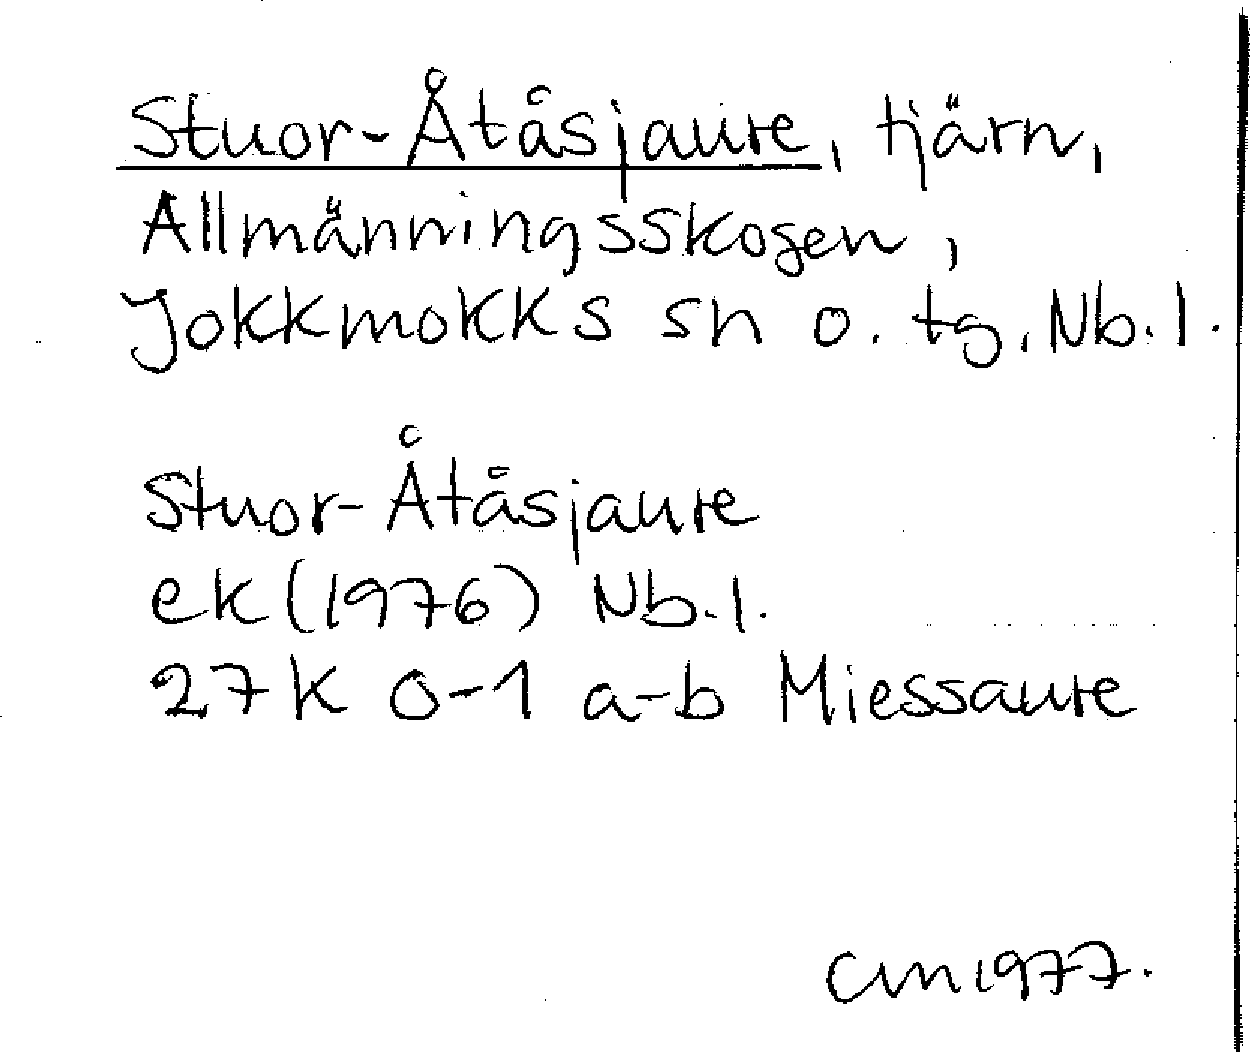 Stuor-Åtåsjaure, tjärn,
Allmänningsskogen,
Jokkmokks sn o. tg, Nb. l.
Stuor-Åtåsjaure
ek (1976) Nb. l.
27K 0-1 a-b Miessaure
CM 1977.